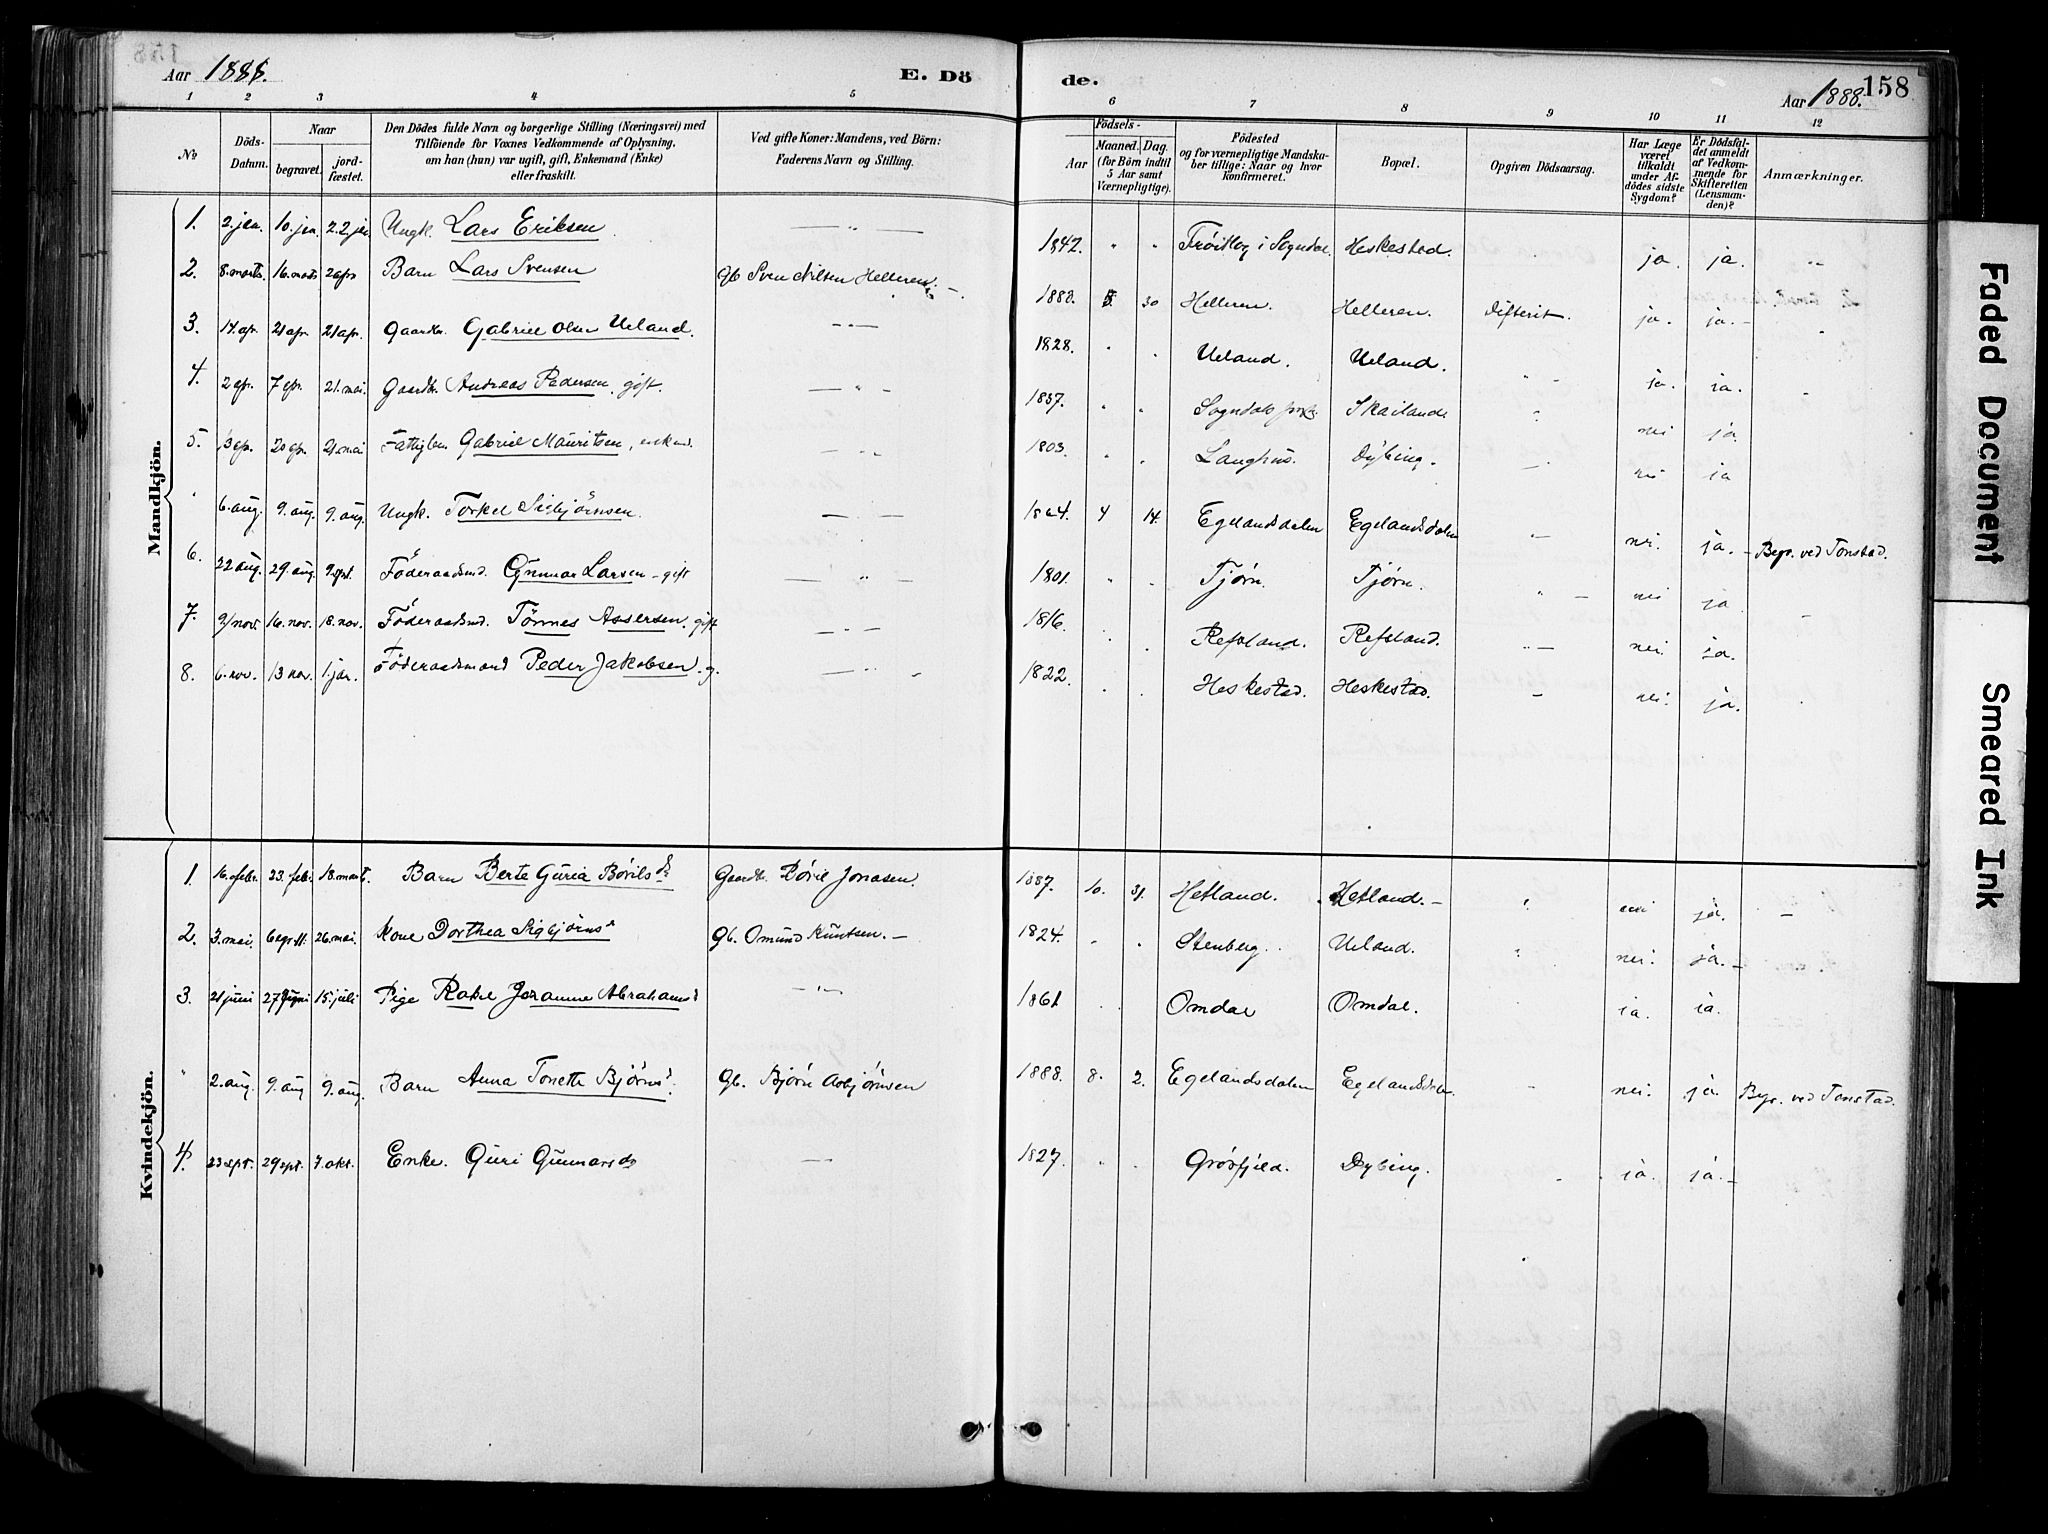 Aar 1888. E. Döde. Aar 1888. 158
1 2 3 4 5 6 7 8 9 10 11 12
No
Döds-Datum.
Naar
begravet.
jord-fæstet.
Den Dödes fulde Navn og borgerlige Stilling (Næringsvei) med
Tilföiende for Voxnes Vedkommende af Oplysning,
om han (hun) var ugift, gift, Enkemand (Enke)
eller fraskilt.
Ved gifte Koner: Mandens, ved Börn:
Faderens Navn og Stilling.
Födsels-
Aar
Maaned. Dag.
(for Börn indtil
5 Aar samt
Værnepligtige).
Födested
og for værnepligtige Mandska-
ber tillige: Naar og hvor
konfirmeret.
Bopæl.
Opgiven Dödsaarsag.
Har Læge
været
tilkaldt
under Af-
dödes sidste
Sygdom?
Er Dödsfal-
det anmeldt
af Vedkom-
mende for
Skifteretten
(Lensman-
den)?
Anmærkninger.
Mandkjön.
1. 2. jan. 10. jan. 22 jan. Ungk. Lars Eriksen — " — 1842. " " i Sogndal Heskestad. ja. ja. "
2. 8. marts. 16. marts 2 apr Barn Lars Svensen Gb Sven Nilsen Helleren. — 1888. 30 Helleren. Helleren. Difterit. ja. ja. —
3. 14. apr. 21 apr 21 apr. Gaardbr. Gabriel Olsen Ueland. — " — 1828. " " Ueland. Ueland. " — ja. ja. "
4. 2 apr. 7 apr. 21. mai. Gaardbr. Andreas Pedersen, gift. — " — 1837. " " Sogndals Skailand. " nei ja. "
5. 13 apr. 20 apr. 21 mai Gabriel Mauritsen, enkem. — " — 1803. " " Langhus. Dybing. — nei ja
" 6. aug. 9. aug. 9. aug. Ungk. Torkel Sigbjörnsen. — " — 1864. 4 14. Egelandsdalen Egelandsdalen "— nei. ja. — Begr. ved Tonstad.
6. 22 aug. 29. aug. 9. sept. Föderaadsmd. Gunnar Larsen — gift — " — 1801. " " Tjörn. Tjörn. " — nei ja. —
7. 9/nov. 16. nov. 18. nov. Föderaadsmd. Tönnes Assersen. gift — " — 1816. " " Refsland. Refsland. " — nei. ja.
8. 6. nov. 13 nov. 1. jan. Föderaadsmand Peder Jakobsen. g. — " — 1822. " " Heskestad. Heskestad. — nei. ja.
Kvindekjön.
1. 16. febr. 23. febr. 18. marts. Barn Berte Guria Börilsdr Gaardbr. Böril Jonasen. 1887. 10. 31. Hetland. Hetland. — " nei ja. —
2. 3. mai. 26. mai. Kone Dorthea Sigbjörnsd Gb. Omund Knutsen. — 1824. " " Stenberg. Ueland. " nei. ja. —
3. 21 juni 27 juni 15. juli Pige Rakel Johanne Abrahamsd — " — 1861 . . Omdal Omdal. ja. ja.
" 2. aug. 9. aug 9. aug. Barn Anna Tonette Björnsd. Gb. Björn Asbjörnsen 1888. 8. 2. Egelandsdalen Egelandsdalen. " nei. ja. Begr. ved Tonstad.
4. 23 sept. 29 sept. 7. okt. Enke. Guri Gunnarsdr — 1827. " " Grösfjeld. Dybing. " ja. ja. —
Faded Document
Smeared Ink